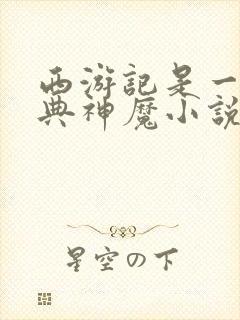 西游記是一
典神魔小説
星空の下